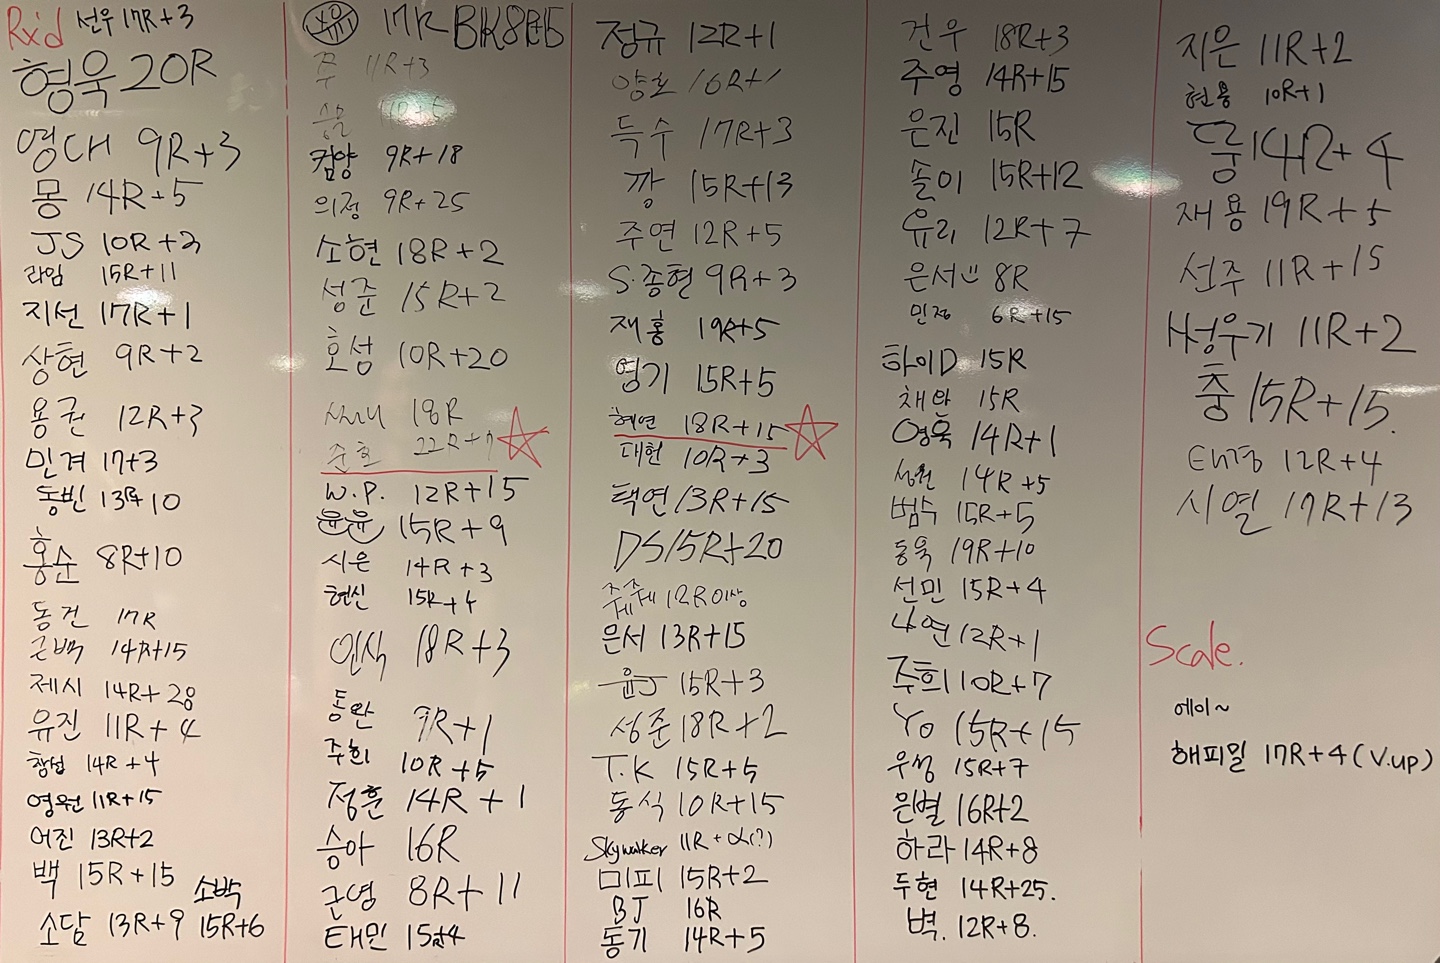 Rx'd 선우 17R+3
형욱 20R
영대 9R+3
몽 14R+5
JS 10R+3
라임 15R+11
지선 17R+1
상현 9R+2
용권 12R+3
민겨 17+3
동빈 13R+10
홍순 8R+10
동건 17R
근백 14R+15
제시 14R+28
유진 11R+4
창섭 14R+4
영원 11R+15
어진 13R+2
백 15R+15
소박
소담 13R+9 15R+6
17R
주 11R+3
컴양 9R+18
의정 9R+25
소현 18R+2
성준 15R+2
호섬 10R+20
18R
준호
W.P. 12R+15
윤윤 15R+9
시은 14R+3
현신 15R+4
인식 18R+3
동완 9R+1
주희 10R+5
정훈 14R+1
승아 16R
근영 8R+11
태민 15+4
정규 12R+1
양호 16R+1
득수 17R+3
깡 15R+13
주연 12R+5
S.종현 9R+3
재홍 19R+5
영기 15R+5
혜연 18R+15
대헌 10R+3
택연 13R+15
DS 15R+20
쭈쭈 12R이상
은서 13R+15
윤J 15R+3
성준 18R+2
T.K 15R+5
동식 10R+15
Skywalker 11R+α(?)
미피 15R+2
BJ 16R
동기 14R+5
건우 18R+3
주영 14R+15
은진 15R
솔이 15R+12
유리 12R+7
은서 8R
민정 6R+15
하이D 15R
채완 15R
영욱 14R+1
성현 14R+5
범수 15R+5
동욱 19R+10
선민 15R+4
나연 12R+1
주희 10R+7
Yo 15R+15
우성 15R+7
은별 16R+2
하라 14R+8
두현 14R+25.
벽. 12R+8.
지은 11R+2
현용 10R+1
뭉 14R+4
재용 19R+5
선주 11R+15
H성우기 11R+2
충 15R+15.
태경 12R+4
시열 17R+13
Scale.
에이~
해피밀 17R+4 (V.up)